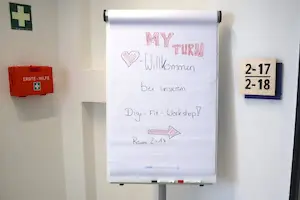 MY
TURN
Willkommen
bei unserem
Workshop!
Raum 2-17
ERSTE-HILFE
2-17
2-18